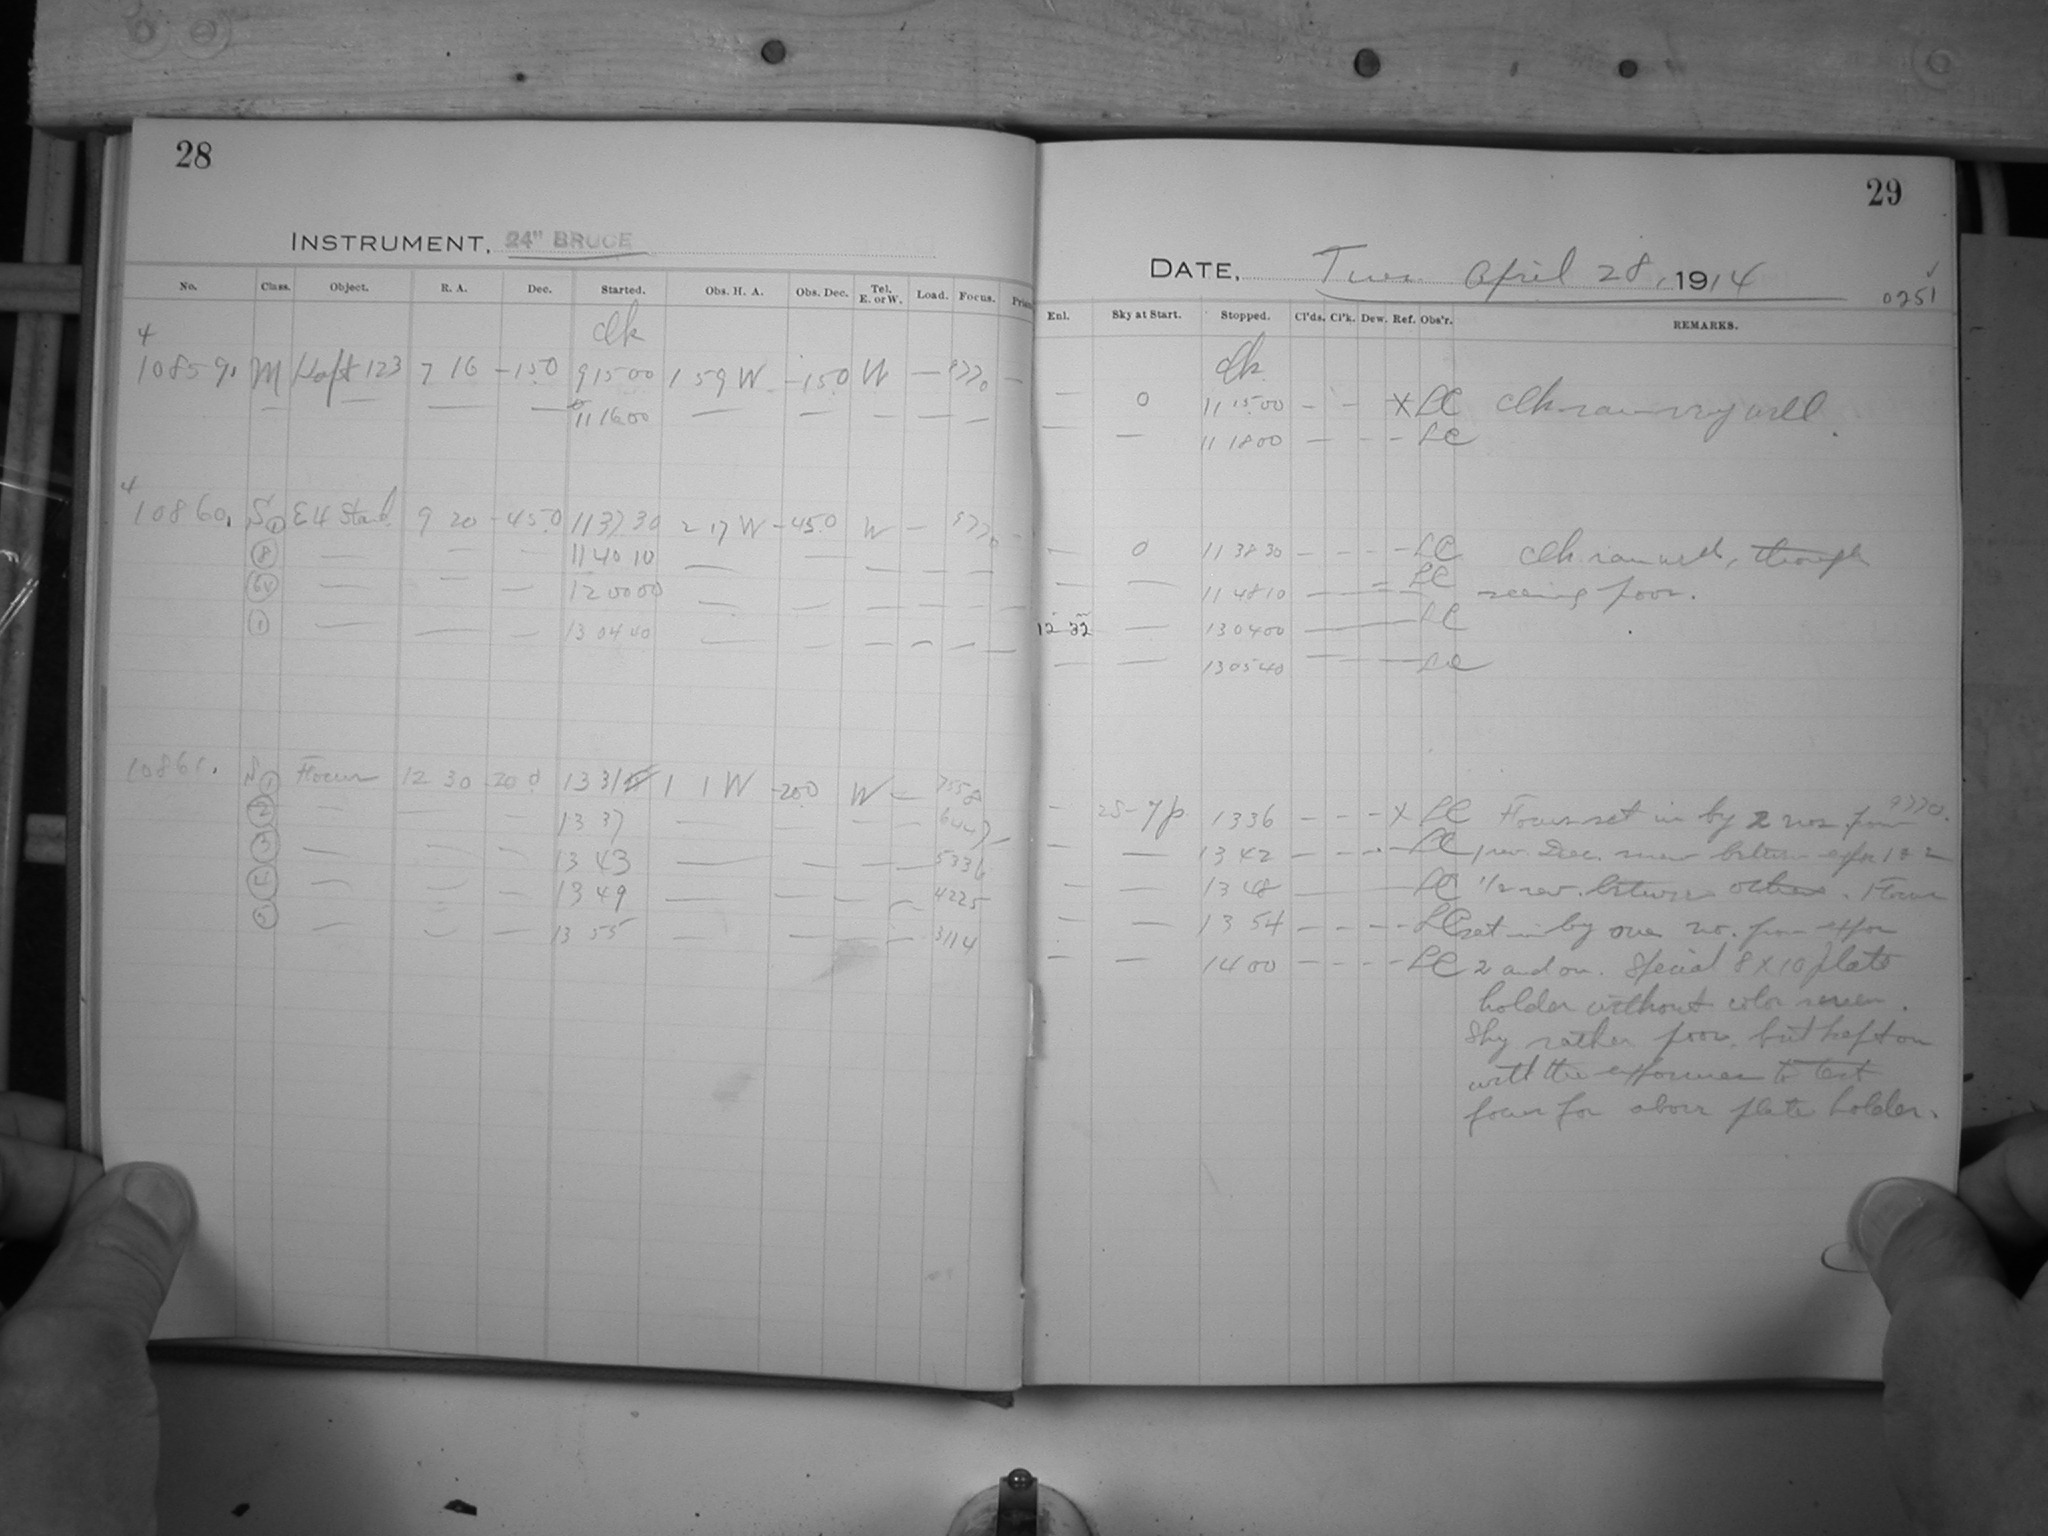 28
INSTRUMENT, 24" BRUCE
No. Class. Object. R. A. Dec. Started. Obs. H. A. Obs. Dec. Tel. E. or W. Load. Focus.
clk
4
10859. M 123 7 16 -15.0 9 15 00 1 59 W -15.0 W — —
— — — — 11 16 00 — — — — —
4
10860. S 1 Stand 9 20 -45.0 11 37 30 2 17 W -45.0 W — —
8 — — — 11 40 10 — — — — —
64 — — — 12 00 00 — — — — — —
1 — — — 13 04 40 — — — — — —
10861. S 1 Focus 12 30 -20 0 13 31 1 1 W -20.0 W —
2 — — — 13 37 — — — —
3 — — — 13 43 — — — — 5336
— — — 13 49 — — — — 4225
— — — 13 55 — — — — 3114
29
DATE, Tues. April 28, 1914
0251
Enl. Sky at Start. Stopped. Cl'ds. Cl'k. Dew. Ref. Obs'r. REMARKS.
clk.
— 0 11 15 00 – – X LC clk ran very well.
— — 11 18 00 — – – – LC
— 0 11 38 30 – – – – LC clk ran well, though
— — 11 48 10 — LC seeing poor.
12 32 — 13 04 00 — LC
— — 13 05 40 — LC
— 13 36 – – – X LC Focus set in by 2 nos. from 9770.
— — 13 42 – – – – LC 1 rev. Dec. screw between expos 1 & 2
— — 13 48 — LC 1/2 rev. between others. Focus
— — 13 54 – – – – LC set in by one no. from expos
— — 14 00 – – – – LC 2 and on. Special 8 X 10 plate
holder without color screen.
Sky rather poor, but kept on
with the exposures to test
focus for above plate holder.